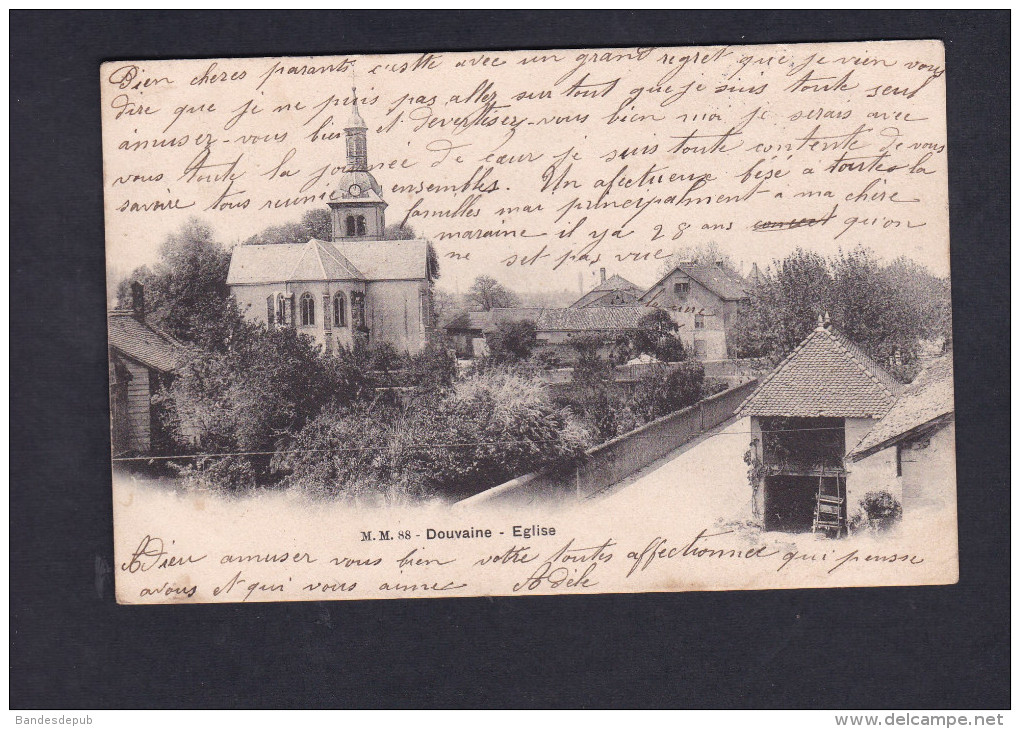 Bien cheres parants c'estte avec un grand regret que je vien vous
dire que je ne puis pas allez surtout que je suis toute seul
amusez-vous bien et devertisez-vous bien moi je serais avec
vous toute la journée de cœur je suis toute contente de vous
savoire tous reunie ensembles. Un afectueux bésé a toutes la
familles mai principalment a ma chère
maraine il y a 28 ans qu'on
ne set pas vue
M. M. 88 - Douvaine - Eglise
Adieu amuser vous bien votre toutes affectionnee qui pensse
a vous et qui vous aime Adèle
Bandesdepub
www.delcampe.net